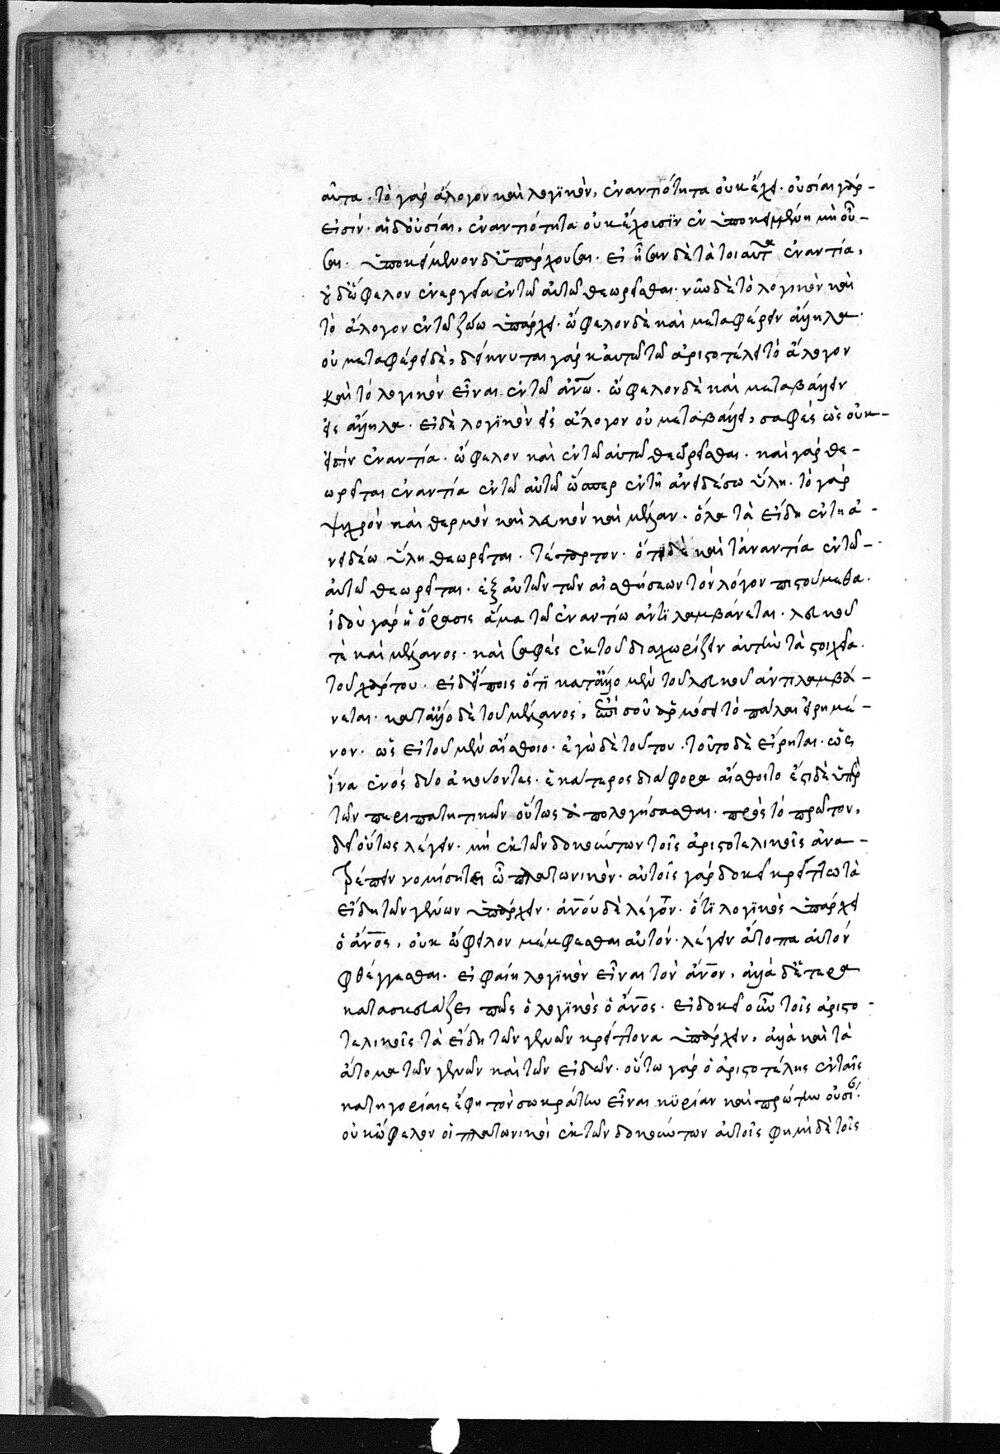 αὗτα. τὸ γὰρ ἄλογον καὶ λογικὸν, ἐναντιότητα οὐκ ἔχει. οὐσίαι γάρ
εἰσίν. αἱ δ' οὐσίαι, ἐναντιότητα οὐκ ἔχουσιν ἐν ὑποκειμένῃ μὴ οὖ-
σαι. ὑποκείμενον δ' ὑπάρχουσαι. εἰ ἦσαν δὲ τὰ τοιαῦτα ἐναντία,
οὐδ' ὤφελον ἐνεργείᾳ ἐν τῶ αὐτῶ θεωρεῖσθαι. νῦν δὲ τὸ λογικὸν καὶ
τὸ ἄλογον ἐν τῶ ζώω ὑπάρχει. ὤφελον δὲ καὶ μεταφέρειν ἄλληλα.
οὐ μεταφέρει δὲ, δείκνυται γὰρ κἀν τούτω τῶ ἀριστοτέλει τὸ ἄλογον
καὶ τὸ λογικὸν εἶναι ἐν τῶ ἀνω. ὤφελον δὲ καὶ μεταβάλλειν
εἰς ἄλληλα. εἰ δὲ λογικὸν εἰς ἄλογον οὐ μεταβάλλει, σαφὲς ὡς οὐκ
εἰσὶν ἐναντία. ὤφελον καὶ ἐν τῶ αὐτῶ θεωρεῖσθαι. καὶ γὰρ θε-
ωρεῖται ἐναντία ἐν τῶ αὐτῶ ὥσπερ ἐν τῆ ἀνειδέω ὕλη. τὸ γὰρ
ψυχρὸν καὶ θερμὸν καὶ λευκὸν καὶ μέλαν. ὅλα τὰ εἴδη ἐν τῆ ἀ-
νειδέω ὕλη θεωρεῖται. τέταρτον. ὅτι δὲ καὶ τἀναντία ἐν τῶ
αὐτῶ θεωρεῖται. ἐξ αὐτῶν τῶν αἰσθήσεων τὸν λόγον πιστούμεθα.
ἰδοὺ γὰρ ἡ ὅρασις ἅμα τῶ ἐναντίω ἀντιλαμβάνεται. λευκοῦ
τὲ καὶ μέλανος. καὶ σαφὲς ἐκ τοῦ διαχωρίζειν αὐτὴν τὰ στοιχεῖα.
τοῦ χάρτου. εἰ δ' εἴποις ὅτι κατ' ἄλλο μὲν τοῦ λευκοῦ ἀντιλαμβά-
νεται. κατ' ἄλλο δὲ τοῦ μέλανος, ἐπὶ σοῦ ἁρμόσει τὸ πάλαι εἰρημέ-
νον. ὡς εἰ τοῦ μὲν αἴσθοιο. ἐγὼ δὲ τούτου. τοῦτο δὲ εἴρηται. ὡς
ἵνα ἑνὸς δύο ἀκούοντες. ἑκάτερος διάφορα αἴσθοιτο ἔστι δὲ ὑπὲρ
τῶν περιπατητικῶν οὕτως ἀπολογήσασθαι. πρὸς τὸ πρῶτον,
δεῖ οὕτως λέγειν. μὴ ἐκ τῶν δοκούντων τοῖς ἀριστοτελικοῖς ἀνα-
τρέπειν νομίσητε ὦ πλατωνικὸν. αὐτοῖς γὰρ δοκεῖ κρείττω τὰ
εἴδη τῶν γενῶν ὑπάρχειν. ἀνου δὲ λέγον. ὅτι λογικὸς ὑπάρχει
ὁ ἀνος, οὐκ ὤφελον μέμφεσθαι αὐτόν. λέγειν ἄτοπα αὐτὸν
φθέγγεσθαι. εἰ φαίη λογικὸν εἶναι τὸν ἀνον, ἀλλὰ δεύτερα
κατασκευάζει πῶς ὁ λογικὸς ὁ ἀνος. εἰ δοκεῖ οὖν τοῖς ἀριστο-
τελικοῖς τὰ εἴδη τῶν γενῶν κρείττονα ὑπάρχειν, ἀλλὰ καὶ τὰ
ἄτομα τῶν γενῶν καὶ τῶν εἰδῶν. οὕτω γὰρ ὁ ἀριστοτέλης ἐν ταῖς
κατηγορίαις ἔφη τὸν σωκράτην εἶναι κυρίαν καὶ πρώτην οὐσί.
οὐκ ὤφελον οἱ πλατωνικοὶ ἐκ τῶν δοκούντων αὐτοῖς φημὶ δὲ τοῖς